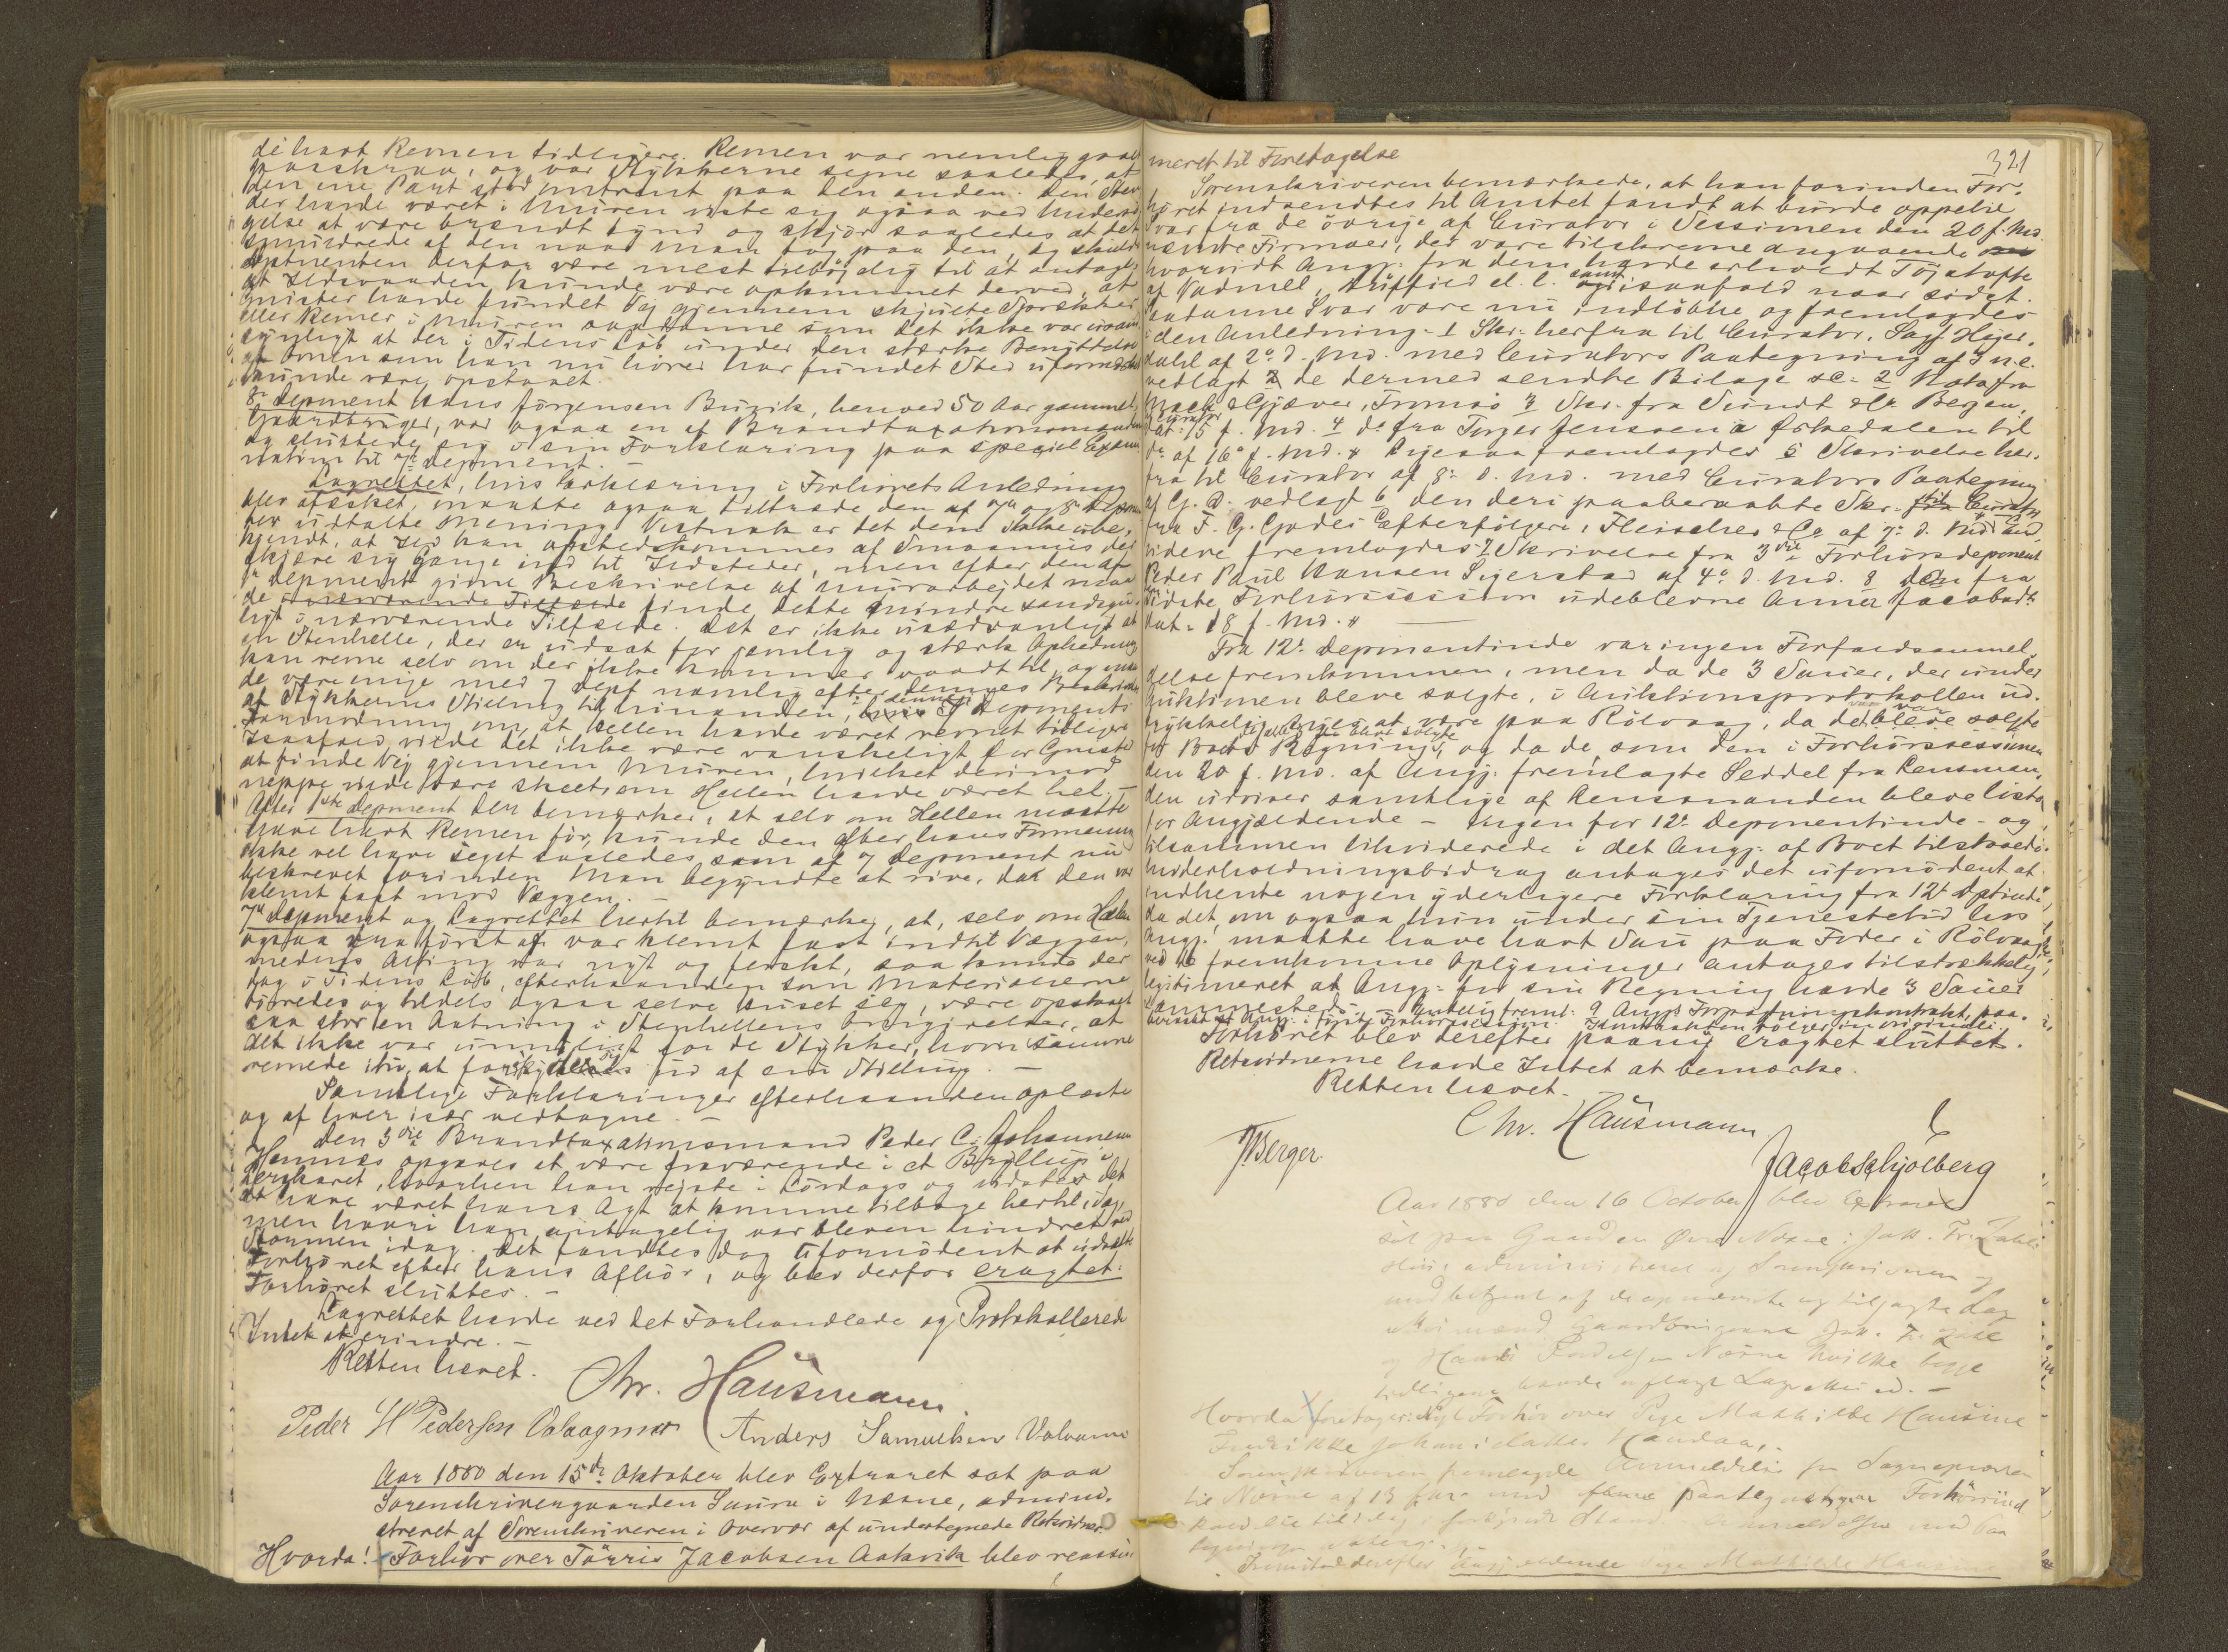 de havt Revnen tidligere. Revnen var nemlig gaaet
paaskraa, og var Stykkerne sene saaledes, at
den ene Part stod mutrent paa den anden. Den Sten
der havde været i Muren viste sig ogsaa ved Undersø-
gelse at være brændt tynd og skjør saaledes at det
smuldrede af den naar man tog paa den, og skulde
Deponenten derfor være mest tilbøjelig til at antage
at Ildsvaaden kunde være opkommet derved, at
Gnister havde fundet Vej gjennem skjulte Sprækker
eller Revner i Muren saadanne som det ikke var usand-
synligt at der i Tidens Løb under den stærke Benyttelse
af Ovnen som han nu hører har fundet Sted uformærket
kunde være opstaaet.
8de Deponent Hans Jørgensen Buvik, henved 50 Aar gammel,
Gaardbruger, var ogsaa en af Brandtaxationsmændene
og sluttede sig i sin Forklaring paa speciel Exami-
nation til 7de Deponent.
Lagrettet, hvis Erklæring i Forhørets Anledning
blev æsket, maatte ogsaa tiltræde den af 7de og 8de Depon.
her udtalte Mening. Vistnok er det dem ikke ube-
kjendt, at Ild kan afstedkommes af Smaamus der
skjære sig Gange ind til Ildsteder, men efter den af
1ste Deponent givne Beskrivelse af Murarbejdet maa
de finde dette mindre sandsyn-
ligt i nærværende Tilfælde. Det er ikke usædvanligt at
en Stenhelle, der er udsat for jævnlig og stærk Ophedning
kan revne selv om der ikke kommer Vaadt til, og maa
de være enige med 7 Dept nemlig efter dennes Beskrivelse
af Stykkernes Stilling til hinanden, i denne Deponents
Formodning om, at Hellen havde været revnet tidligere
Isaafald vilde det ikke være vanskeligt for Gnister
at finde Vej gjennem Muren, hvilket derimod
neppe vilde være skeet om Hellen havde været hel.
Atter 1ste Deponent der bemærker, at selv om Hellen maatte
have havt Revnen før, kunde den efter hans Formening
ikke vel have seget saaledes som af 7 Deponent nu
beskrevet forinden Man begyndte at rive, da den var
klemt fast mod Væggen.
7de Deponent og Lagrettet hertil bemærke, at, selv om Hellen
ogsaa fra først af var klemt fast indtil Væggen,
medens Alting var nyt og ferskt, saa kunde der
dog i Tidens Løb, efterhaanden som Materialierne
tørredes og tildels ogsaa selve Huset seg, være opstaaet
saa stor en Aabning i Stenhellens Omgivelser, at
det ikke var umuligt for de Stykker, hvori samme
revnede itu, at forskyde sig ud af sin Stilling.
Samtlige Forklaringer efterhaanden oplæste
og af hver især vedtagne.
Den 3die Brandtaxationsmand Peder C. Johannesen
Hemnes opgaves at være fraværende i et Bryllup i
Herskaret, hvorhen han rejste i Lørdags og vidstes det
at have været hans Agt at komme tilbage hertil idag
men hvori han antagelig var bleven hindret ved
Stormen idag. Det fandtes dog ufornødent at udsætte
Forhøret efter hans Afhør, og blev derfor eragtet:
Forhøret sluttes.
Lagrettet havde ved det Forhandlede og Protokollerede
Intet at erindre.
Retten hævet.
Chr. Hausmann.
Peder H Pedersen
Anders Samuelsen
Aar 1880 den 15de Oktober blev Extraret sat paa
Sorenskrivergaarden Saura i Næsne, admini-
streret af Sorenskriveren i Overvær af undertegnede Retsvidner.
Hvorda! Forhør over Tørris Jacobsen Aakvik blev reassu-
321
meret til Foretagelse
Sorenskriveren bemærkede, at han forinden For-
høret indsendtes til Amtet fandt at burde oppebie
Svar fra de øvrige af Curator i Sessionen den 20 f. Md.
nævnte Firmaer, der vare tilskrevne angaaende
hvorvidt Angj: fra dem havde erholdt Tøjstoffe
af Vadmel, Düffield el. l. samt isaafald naar sidst.
Saadanne Svar vare nu indløbne og fremlagdes
i den Anledning 1 Skr. herfra til Curator, Sagf. Hejer-
dahl af 2de d. Md. med Curators Paategning af s. D.
vedlagt de dermed sendte Bilage sc: 2 Nota fra
Mack & Gjæver, Tromsø 3 Skr. fra Sundt & Co Bergen,
dat: 15 f. Md. 4 do fra Torger Jenssen i Orkedalen til
do af 16de f. Md. Ligesaa fremlagdes 5 Skrivelse her-
fra til Curator af 8de d. Md. med Curators Paategning
af G. D. vedlagt 6 den deri paaberaabte Skr.
fra F. G. Gades Efterfølgere, Fleischer & Co. af 7de d. Md. End-
videre fremlagdes 7 Skrivelse fra 3die Forhørsdeponent
Peder Paul Hansen Sigerstad af 4de d. Md. 8 den fra
sidste Forhørssession udeblevne Anne Jacobsdtr
dat: 18 f. Md.
Fra 12te Deponentinde var ingen Forfaldsanmel-
delse fremkommen, men da de 3 Sauer, der under
Auktionen bleve solgte, i Auktionsprotokollen ud-
trykkelig angives at være paa Rølvaag, da de bleve solgte
for Boets Regning, og da de, som den i Forhørssessionen
den 20 f. Md. af Angj: fremlagte Seddel fra Lensman-
den udviser samtlige af Lensmanden bleve listo
for Angjældende – Ingen for 12te Deponentinde – og
tilsammen likviderede i det Angj: af Boet tilstaaede
Underholdningsbidrag antages det ufornødent at
indhente nogen yderligere Forklaring fra 12te Dptinde,
da det, om ogsaa hun under sin Tjenestetid hos
Angj. maatte have havt Sau paa Foder i Rølvaag,
ved de fremkomne Oplysninger antages tilstrækkelig
legitimeret at Angj: for sin Regning havde 3 Sauer
sammesteds. Endelig freml: 9 Angjs Forpagtningskontrakt, paa-
beraabt af Angj. i første Forhørssession. Kontrakten følger in originali.
Forhøret blev derefter paany eragtet sluttet.
Retsvidnerne havde Intet at bemærke.
Retten hævet.
Chr. Hausmann
J. Berger.
Jacob Schjölberg
Aar 1880 den 16 October blev Extraret
sat paa Gaarden Øvre Næsne i Jak. Fr. Zahls
Huus administreret af Sorenskriveren og
med betjent af de opnævnte og tilsagte Lag
rettesmænd Gaardbrugerne Jak. Fr. Zahl
og Hans Næsne hvilke begge
tidligere havde aflagt Lagrettesed.
Hvorda foretages: Nyt Forhør over Pige Mathilde Hansine
Fredrikke Johansdatter Handaa.
Sorenskriveren fremlagde Anmeldelse fra Sognepræsten
til Næsne af 13 med Paategning om Forhørsind
kaldelse til idag. Anmeldelsen med Paa
tegninger
Fremstod derefter Angjældende Pige Mathilde Hansine